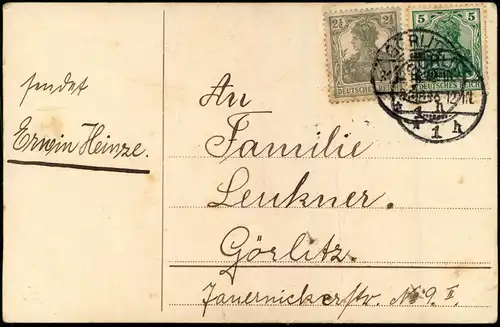 sendet
Erwin Heinze.
2½ 2½
DEUTSCHES REICH
5 5
DEUTSCHES REICH
GÖRLITZ
* 1 h
* 1 h
An
Familie
Leukner.
Görlitz.
Jauernickerstr. No 9. II.